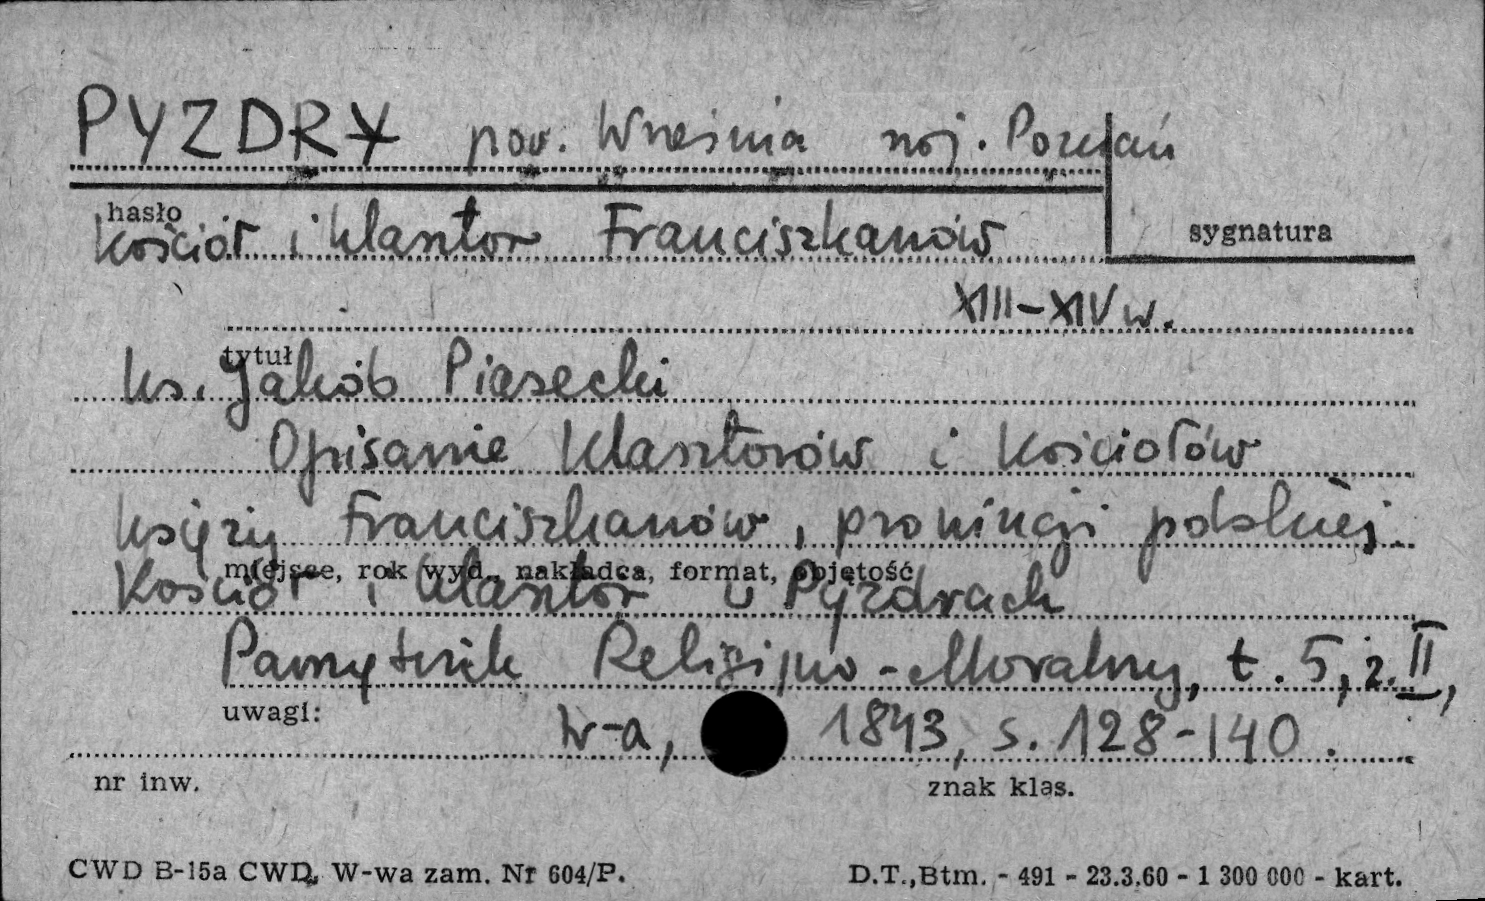 PYZDRY pow. Września woj. Poznań
hasło
Kościół i klasztor Franciszkanów
sygnatura
XIII-XIV w.
tytuł
ks. Jakób Piasecki
Opisanie klasztorów i kościołów
księży Franciszkanów, prowincji polskiej.
miejsce, rok wyd., nakładca, format, objętość
Kościół i klasztor w Pyzdrach
Pamiętnik Religijno-Moralny, t. 5, z. II,
uwagi:
W-a, 1843, s. 128-140.
nr inw.
znak klas.
CWD B-15a CWD, W-wa zam. Nr 604/P.
D.T., Btm. - 491 - 23.3.60 - 1 300 000 - kart.